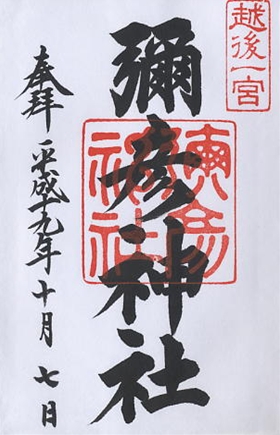 越後一宮
彌彦神社
彌彦神社
奉拝 平成十九年十月七日